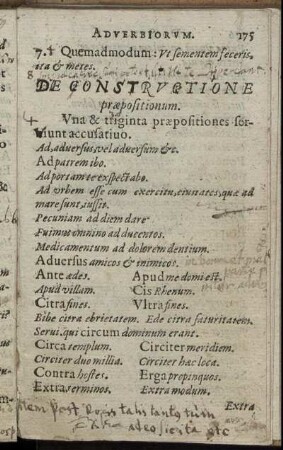 ADVERBIORVM. 175
7. † Quemadmodum: Vt sementem feceris,
ita & metes.
8
DE CONSTRVCTIONE
præpositionum.
+ Vna & triginta præpositiones ser-
uiunt accusatiuo.
Ad, aduersus, vel aduersum &c.
Ad patrem ibo.
Ad portam te exspectabo.
Ad vrbem esse cum exercitu, ciuitates, quæ ad
mare sunt, iussit.
Pecuniam ad diem dare
Fuimus omnino ad ducentos.
Medicamentum ad dolorem dentium.
Aduersus amicos & inimicos.
Ante ædes. Apud me domi est.
Apud villam. Cis Rhenum.
Citra fines. Vltra fines.
Bibe citra ebrietatem. Ede citra saturitatem.
Serui, qui circum dominum erant.
Circa templum. Circiter meridiem.
Circiter duo millia. Circiter hæc loca.
Contra hostes. Erga propinquos.
Extra terminos. Extra modum.
Extra
Item post
etc